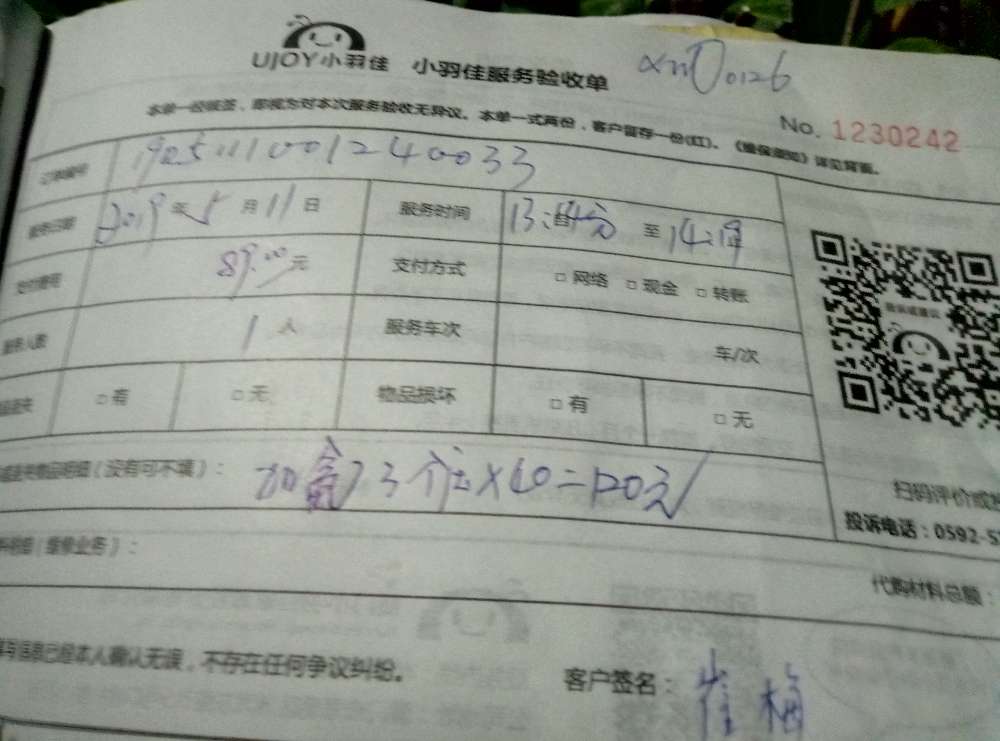 UJOY小羽佳 小羽佳服务验收单
No. 1230242
本单一经核签，即视为对本次服务验收无异议。本单一式两份，客户留存一份(红)。《维保须知》详见背面。
订单编号 1905111001240033
服务日期 2019年5月11日 服务时间 13:54分 至 14:19
支付费用 89.00元 支付方式 □网络 □现金 □转账
服务人数 1人 服务车次 车/次
□有 □无 物品损坏 □有 □无
物品明细（没有可不填）： 加 3个 ×40=120元
扫码评价或
投诉电话：0592-5
（维修业务）：
代购材料总额：
信息已经本人确认无误，不存在任何争议纠纷。
客户签名： 崔梅